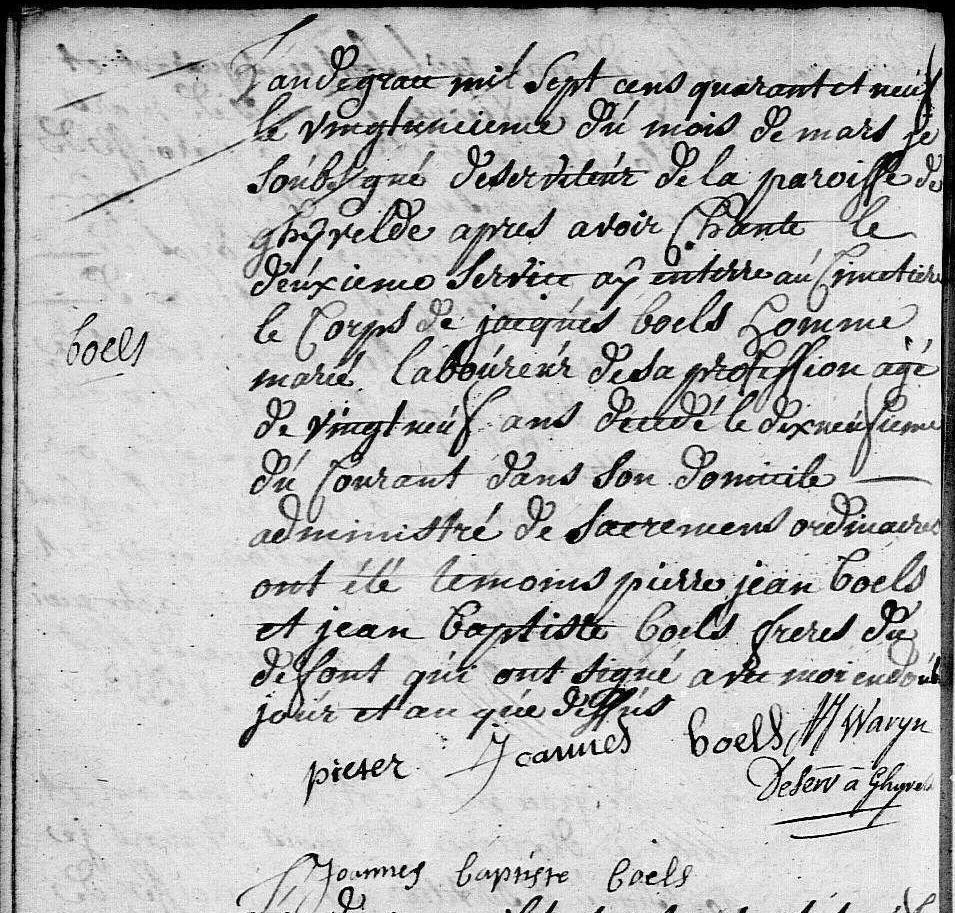 L'an de grace mil sept cens quarant et neuf
le vingtuncieme du mois de mars je
soubsigné deserviteur de la paroisse de
ghyvelde apres avoir Chante le
deuxieme service ay enterre au Cimetiere
le Corps de jacques boels homme
boels
marié laboureur de sa profession agé
de vingt neuf ans decedé le dixneufieme
du Courant dans son domicile
administré de sacremens ordinaires
ont été temoins pierre jean boels
et jean baptiste boels freres du
defont qui ont signé avec moi en double
jour et an que dessus
pieter Joannes boels Waryn
Deserv a Ghyvelde
Joannes baptiste boels